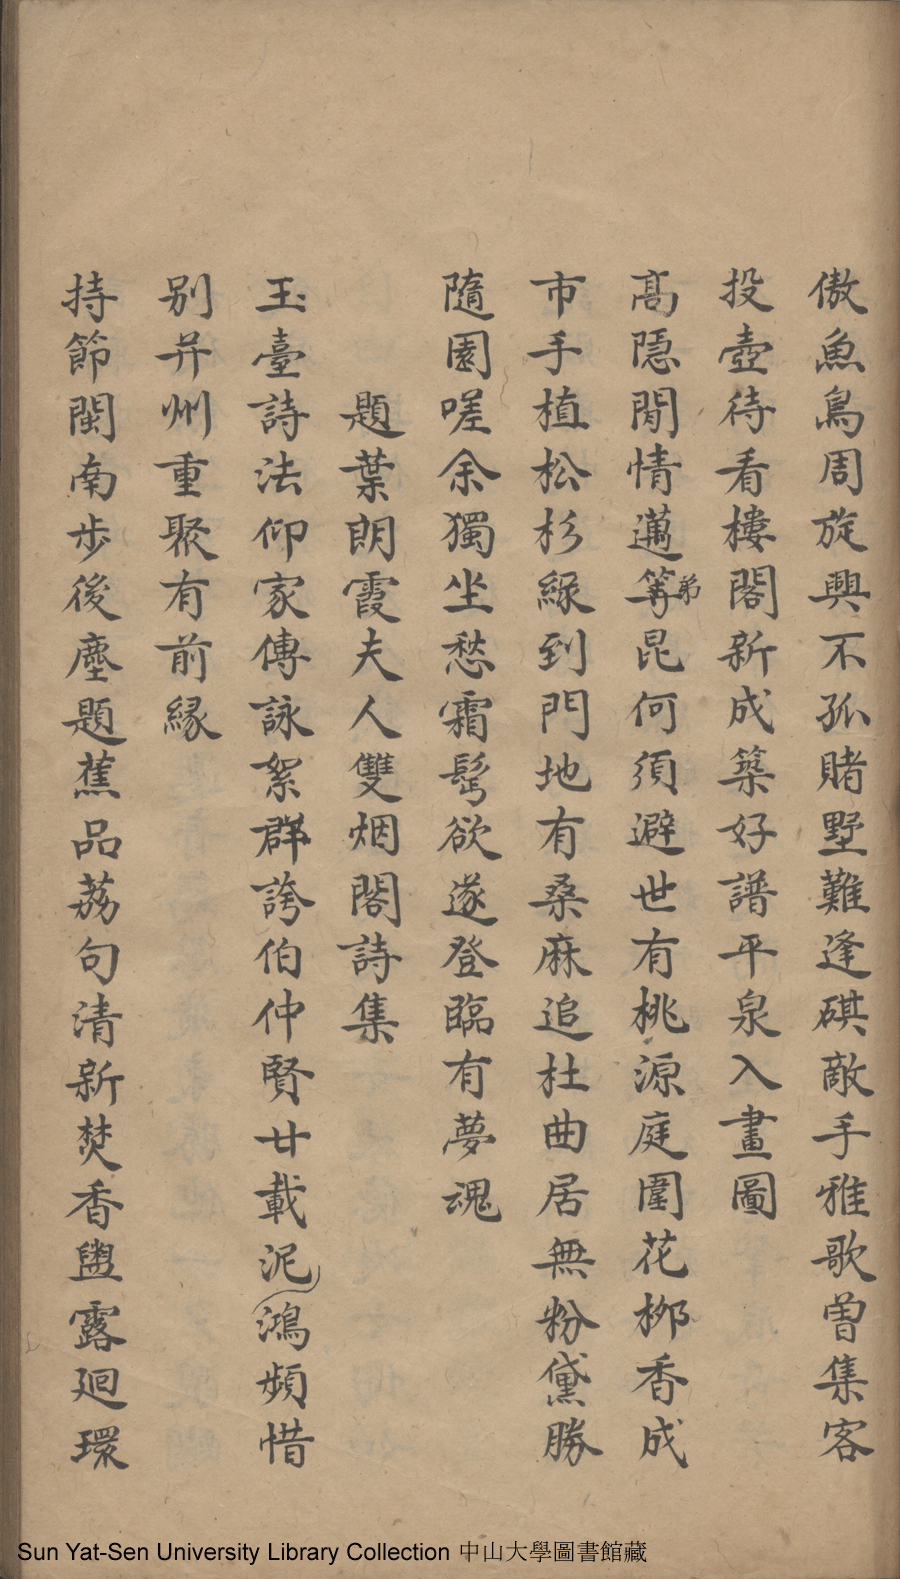 傲魚鳥周旋興不孤賭墅難逢碁敵手雅歌曾集客
投壺待看樓閣新成築好譜平泉入畫圖
高隱閒情邁等弟昆何須避世有桃源庭圍花栁香成
市手植松杉緑到門地有桑麻追杜曲居無粉黛勝
隨園嗟余獨坐愁霜髩欲遂登臨有夢魂
題葉朗霞夫人雙烟閣詩集
玉臺詩法仰家傳詠絮群誇伯仲賢廿載泥鴻頻惜
别并州重聚有前緣
持節閩南步後塵題蕉品荔句清新焚香盥露迴環
Sun Yat-Sen University Library Collection 中山大學圖書館藏